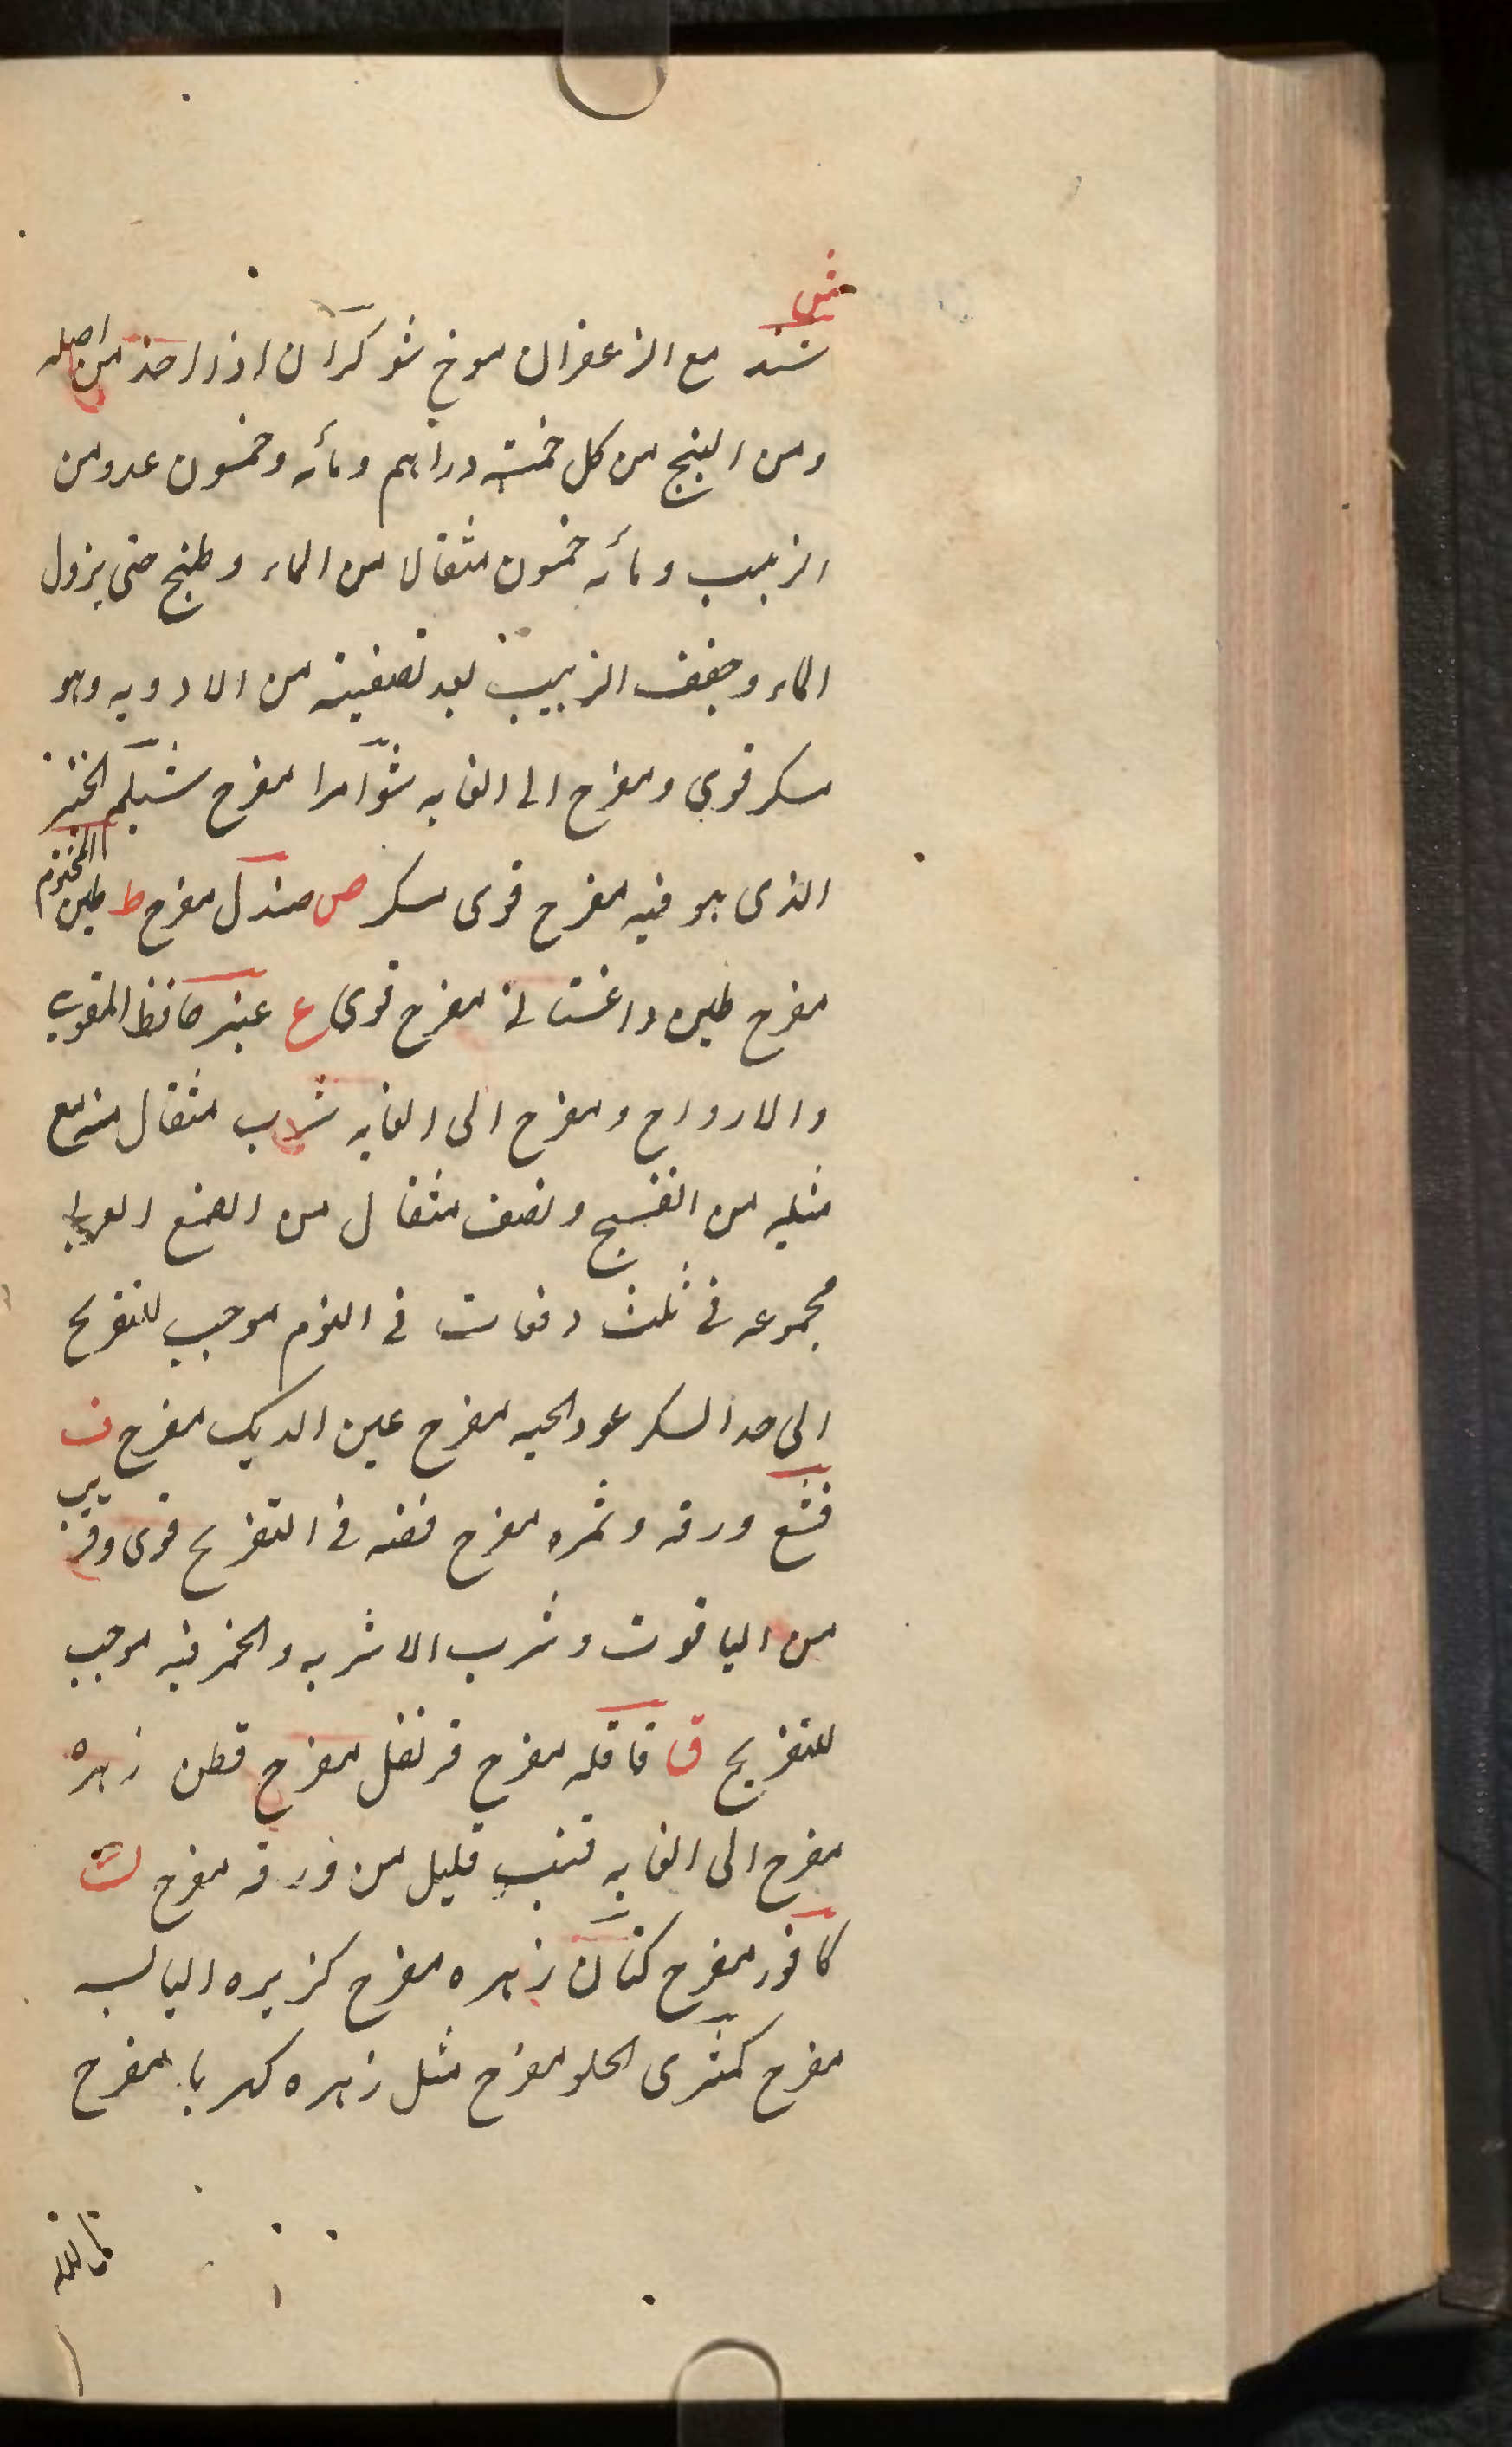 ش
شند مع الزعفران موخ شوكران اذا اخذ من اصله
ومن البنج من كل خمسة دراهم ومأئه وخمسون عدد من
الزبيب ومأئه خمسون مثقالا من الماء وطبخ حتى يزول
الماء وجفف الزبيب بعد تصفيته من الادويه وهو
مسكر قوى ومفرح الى الغايه شوامرا مفرح شيلم الخبز
الذى هو فيه مفرح قوى مسكر ص صندل مفرح ط طين المختوم
مفرح طين داغستانى مفرح قوى ع عنبر حافظ القوى
والارواح ومفرح الى الغايه شراب مثقال منه مع
مثليه من البنفسج ونصف مثقال من الصمغ العربى
مجموعه فى ثلث دفعات فى اليوم موجب للتفريح
الى حد السكر عود الحيه مفرح عين الديك مفرح ف
فستق ورقه وثمره مفرح فضه فى التفريح قوى وقريب
من الياقوت وشرب الاشربه والخمر فيه موجب
للتفريح ق قاقله مفرح قرنفل مفرح قطن زهره
مفرح الى الغايه قنب قليل من ورقه مفرح ك
كافور مفرح كتان زهره مفرح كزبره اليابسه
مفرح كمثرى الحلو مفرح مثل زهره كهربا مفرح